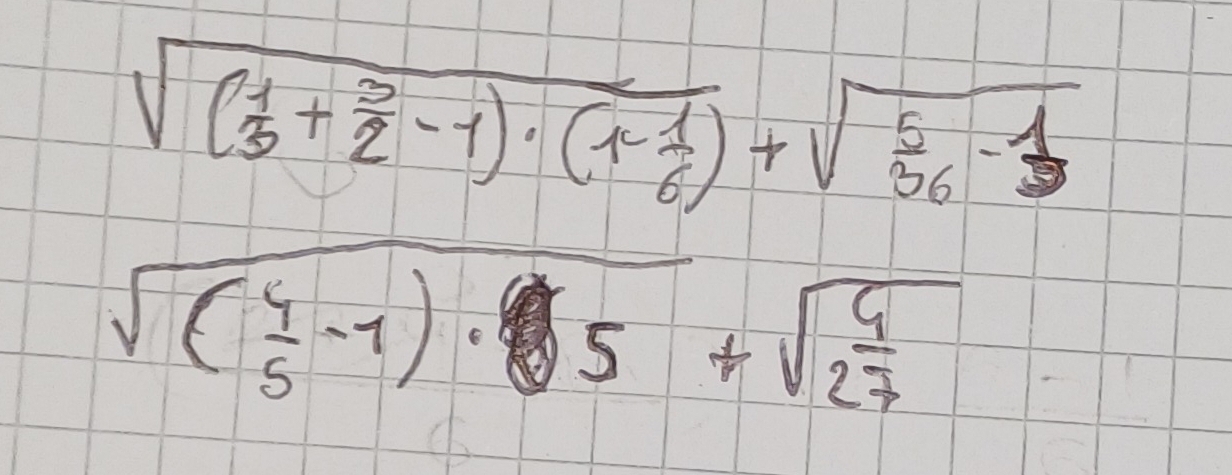 √((1/3 + 3/2 - 1) · (1 - 1/6)) + √(5/36 - 1/3)
√((4/5 - 1) · 5) + √(4/27)